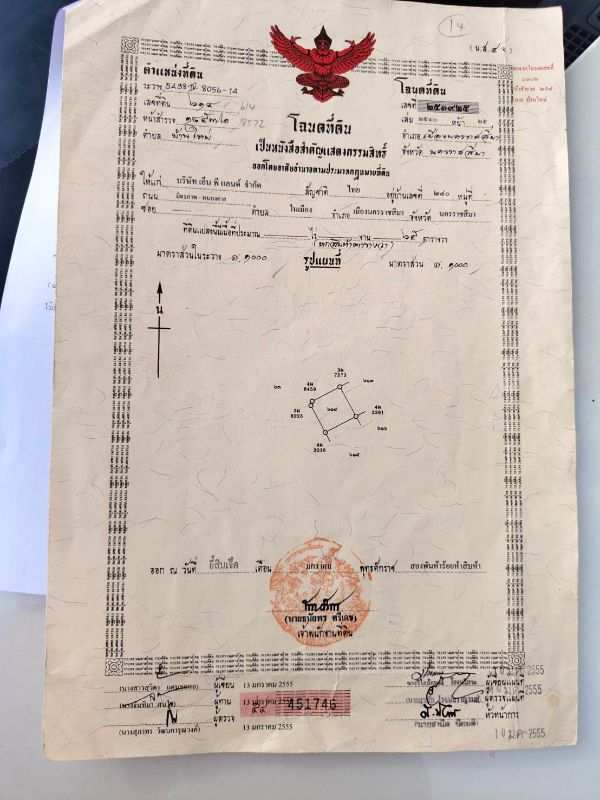 14
(น.ส.๔ จ.)
ตำแหน่งที่ดิน
ระวาง 5438 IV 8056-14
เลขที่ดิน ๖๑๔ 614
หน้าสำรวจ 18572
ตำบล บ้านใหม่
โฉนดที่ดิน
เลขที่ ๒๕๓๙๒๕
เล่ม ๒๕๔๐ หน้า ๒๕
อำเภอ เมืองนครราชสีมา
จังหวัด นครราชสีมา
โฉนดที่ดิน
เป็นหนังสือสำคัญแสดงกรรมสิทธิ์
ออกโดยอาศัยอำนาจตามประมวลกฎหมายที่ดิน
ให้แก่ บริษัท เอ็น พี แลนด์ จำกัด สัญชาติ ไทย อยู่บ้านเลขที่ ๒๔๐ หมู่ที่
ถนน มิตรภาพ-หนองคาย
ซอย ตำบล ในเมือง อำเภอ เมืองนครราชสีมา จังหวัด นครราชสีมา
ที่ดินแปลงนี้มีเนื้อที่ประมาณ ไร่ งาน ๖๕ ตารางวา
(หกสิบห้าตารางวา)
มาตราส่วนในระวาง ๑:๑๐๐๐ รูปแผนที่ มาตราส่วน ๑:๑๐๐๐
น
3ม
7271
๖๓
4ม
8459
๖๑๓
3ม
8225
๖๑๔
4ม
2291
4ม
2036
๖๑๕
ออก ณ วันที่ ยี่สิบเจ็ด เดือน มกราคม พุทธศักราช สองพันห้าร้อยห้าสิบห้า
เจ้าพนักงานที่ดิน
ผู้เขียน 13 มกราคม 2555
ผู้ทาน 13 มกราคม 2555
451746
ผู้ตรวจ 13 มกราคม 2555
ผู้เขียนแผนที่
ผู้ตรวจแผนที่
หัวหน้าการ
10 ม.ค. 2555